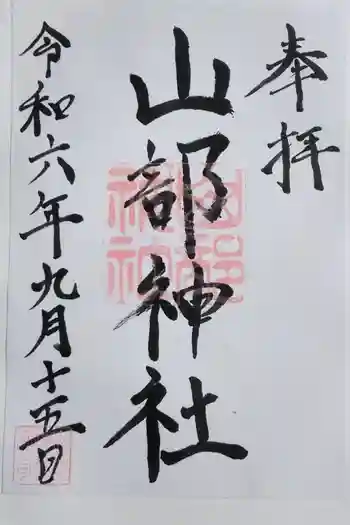 奉拝
山部神社
令和六年九月十五日